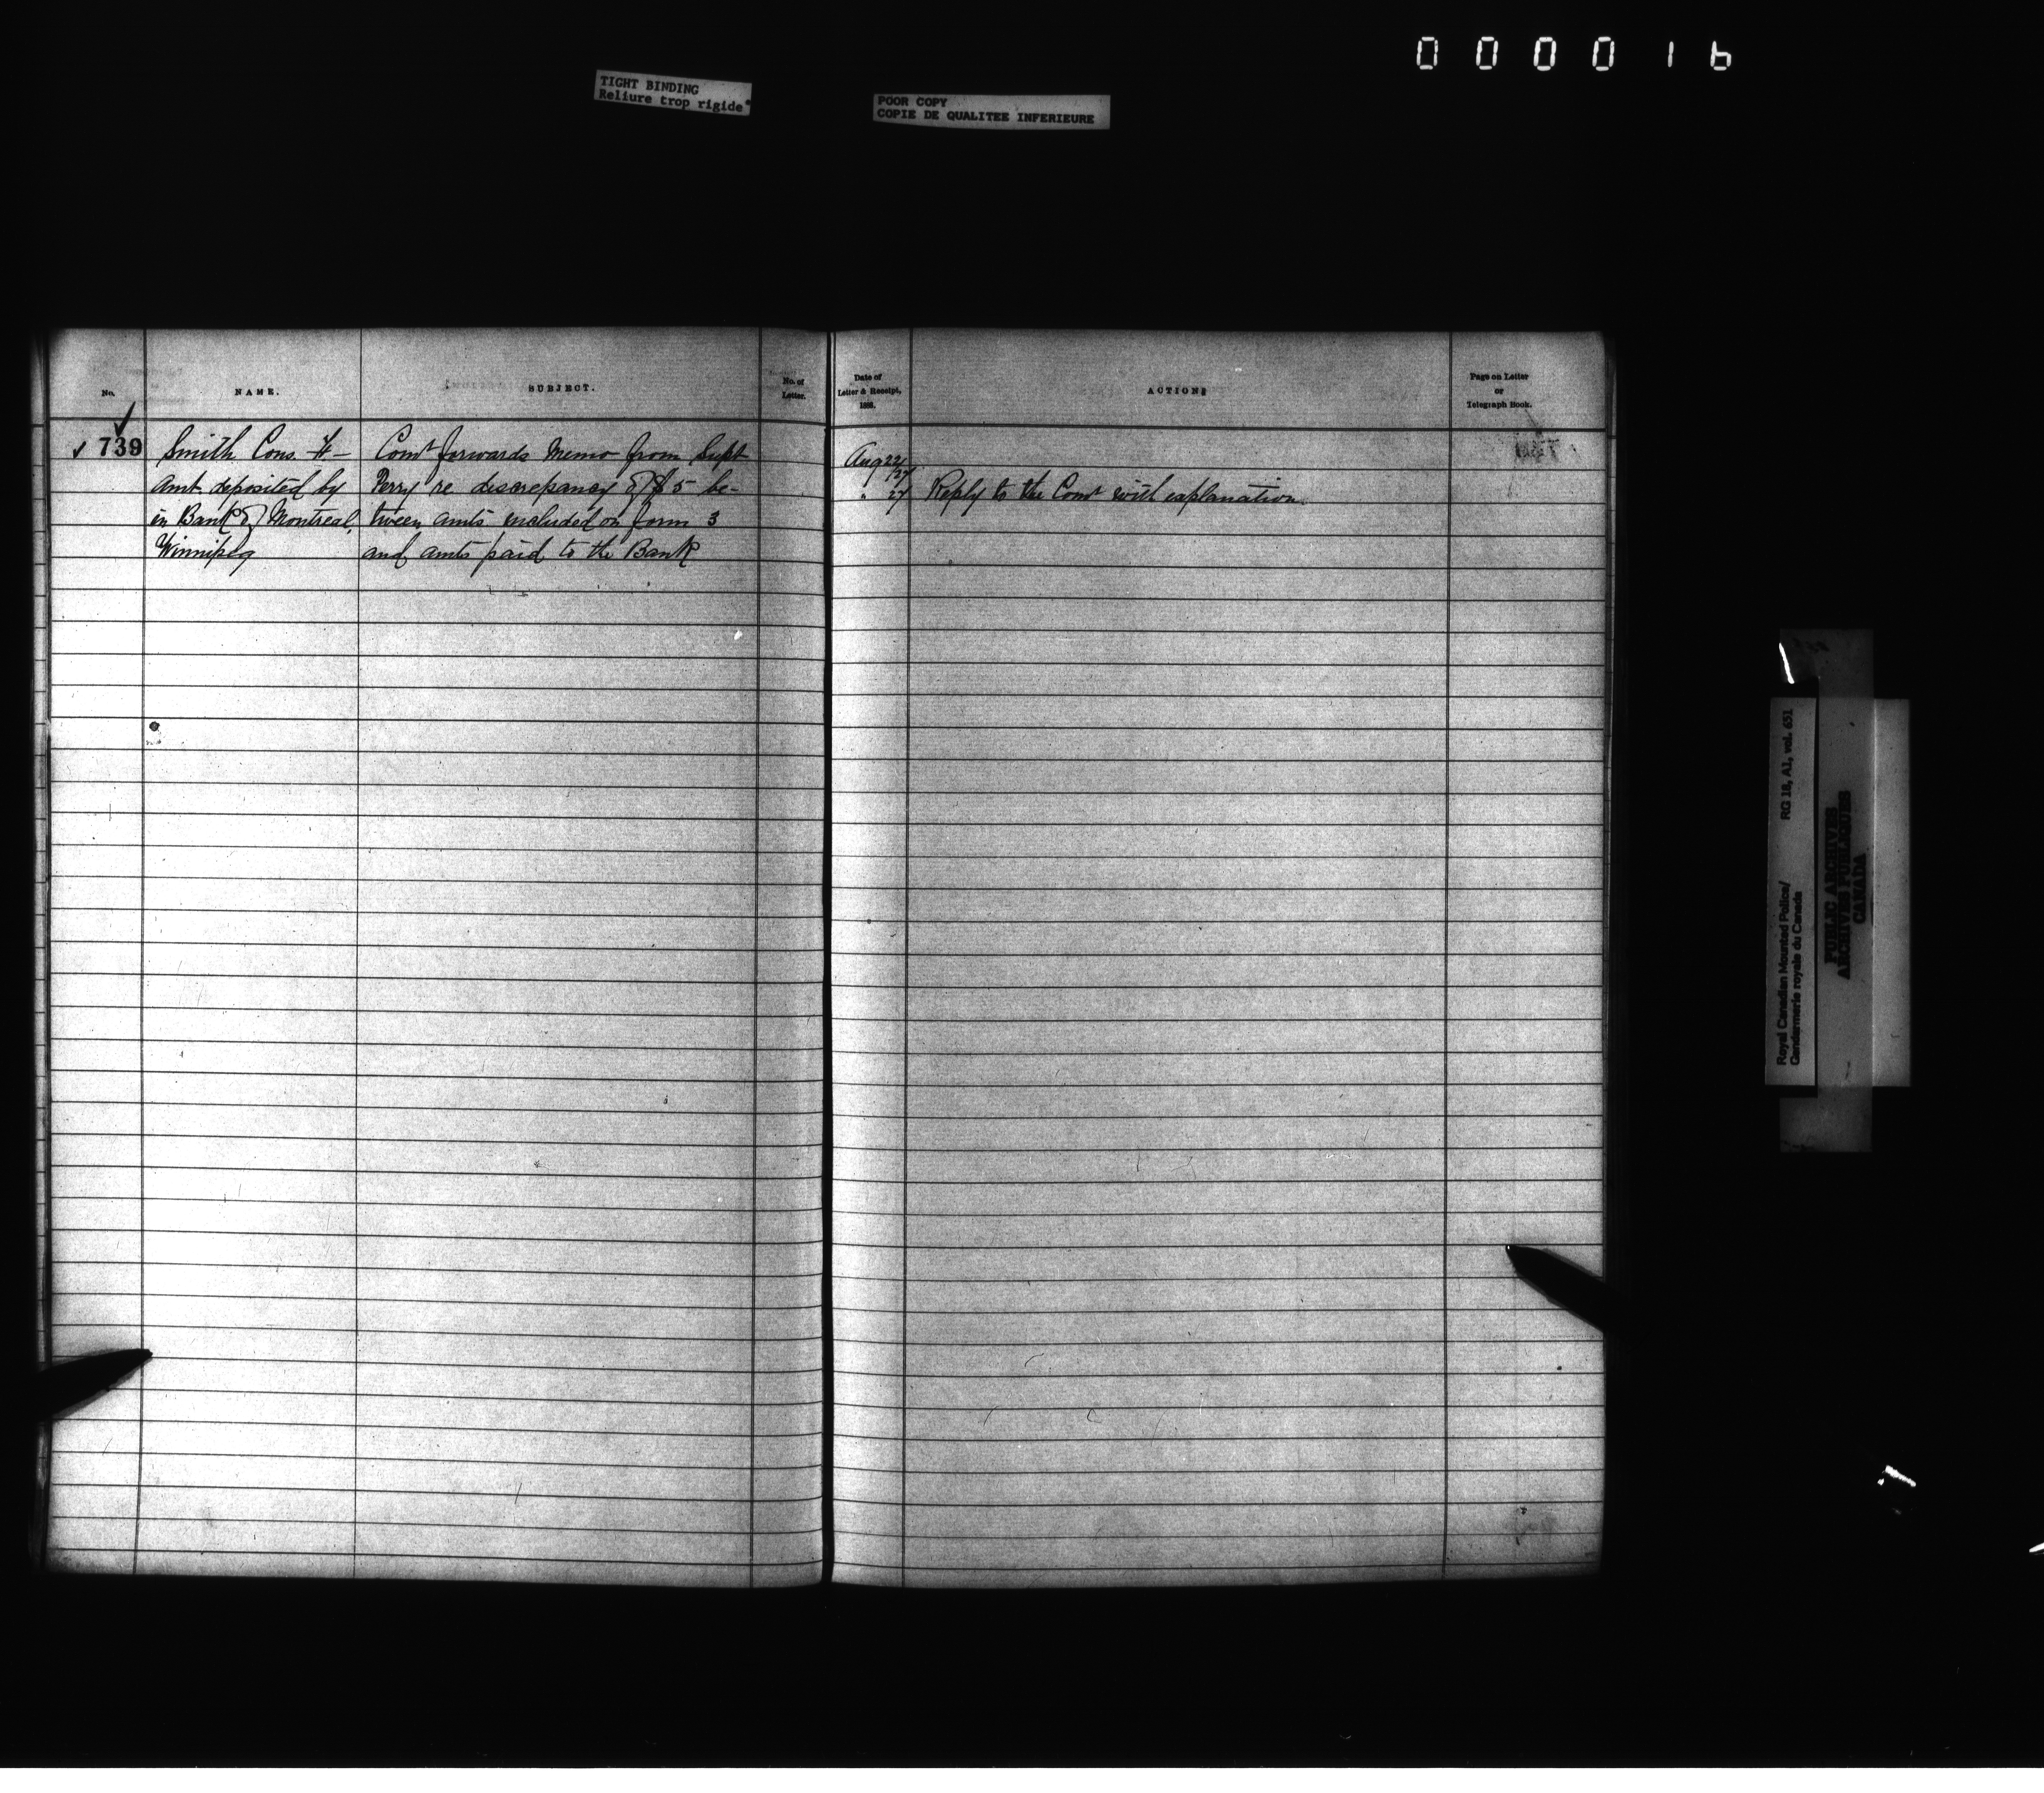 000016
TIGHT BINDING
Reliure trop rigide
POOR COPY
COPIE DE QUALITEE INFERIEURE
No.
NAME.
SUBJECT.
No. of
Letter.
Date of
Letter & Receipt,
1888.
ACTION
Page on Letter
or
Telegraph Book.
739
Smith Cons. –
Amt deposited by
in Bank of Montreal,
Winnipeg
Comr forwards Memo from Supt
Perry re discrepancy of $5 be-
tween amts included on form 3
and amts paid to the Bank
Aug 22/27
" 27 Reply to the Comr with explanation
Royal Canadian Mounted Police/ RG 18, A1, vol. 651
Gendarmerie royale du Canada
PUBLIC ARCHIVES
ARCHIVES PUBLIQUES
CANADA